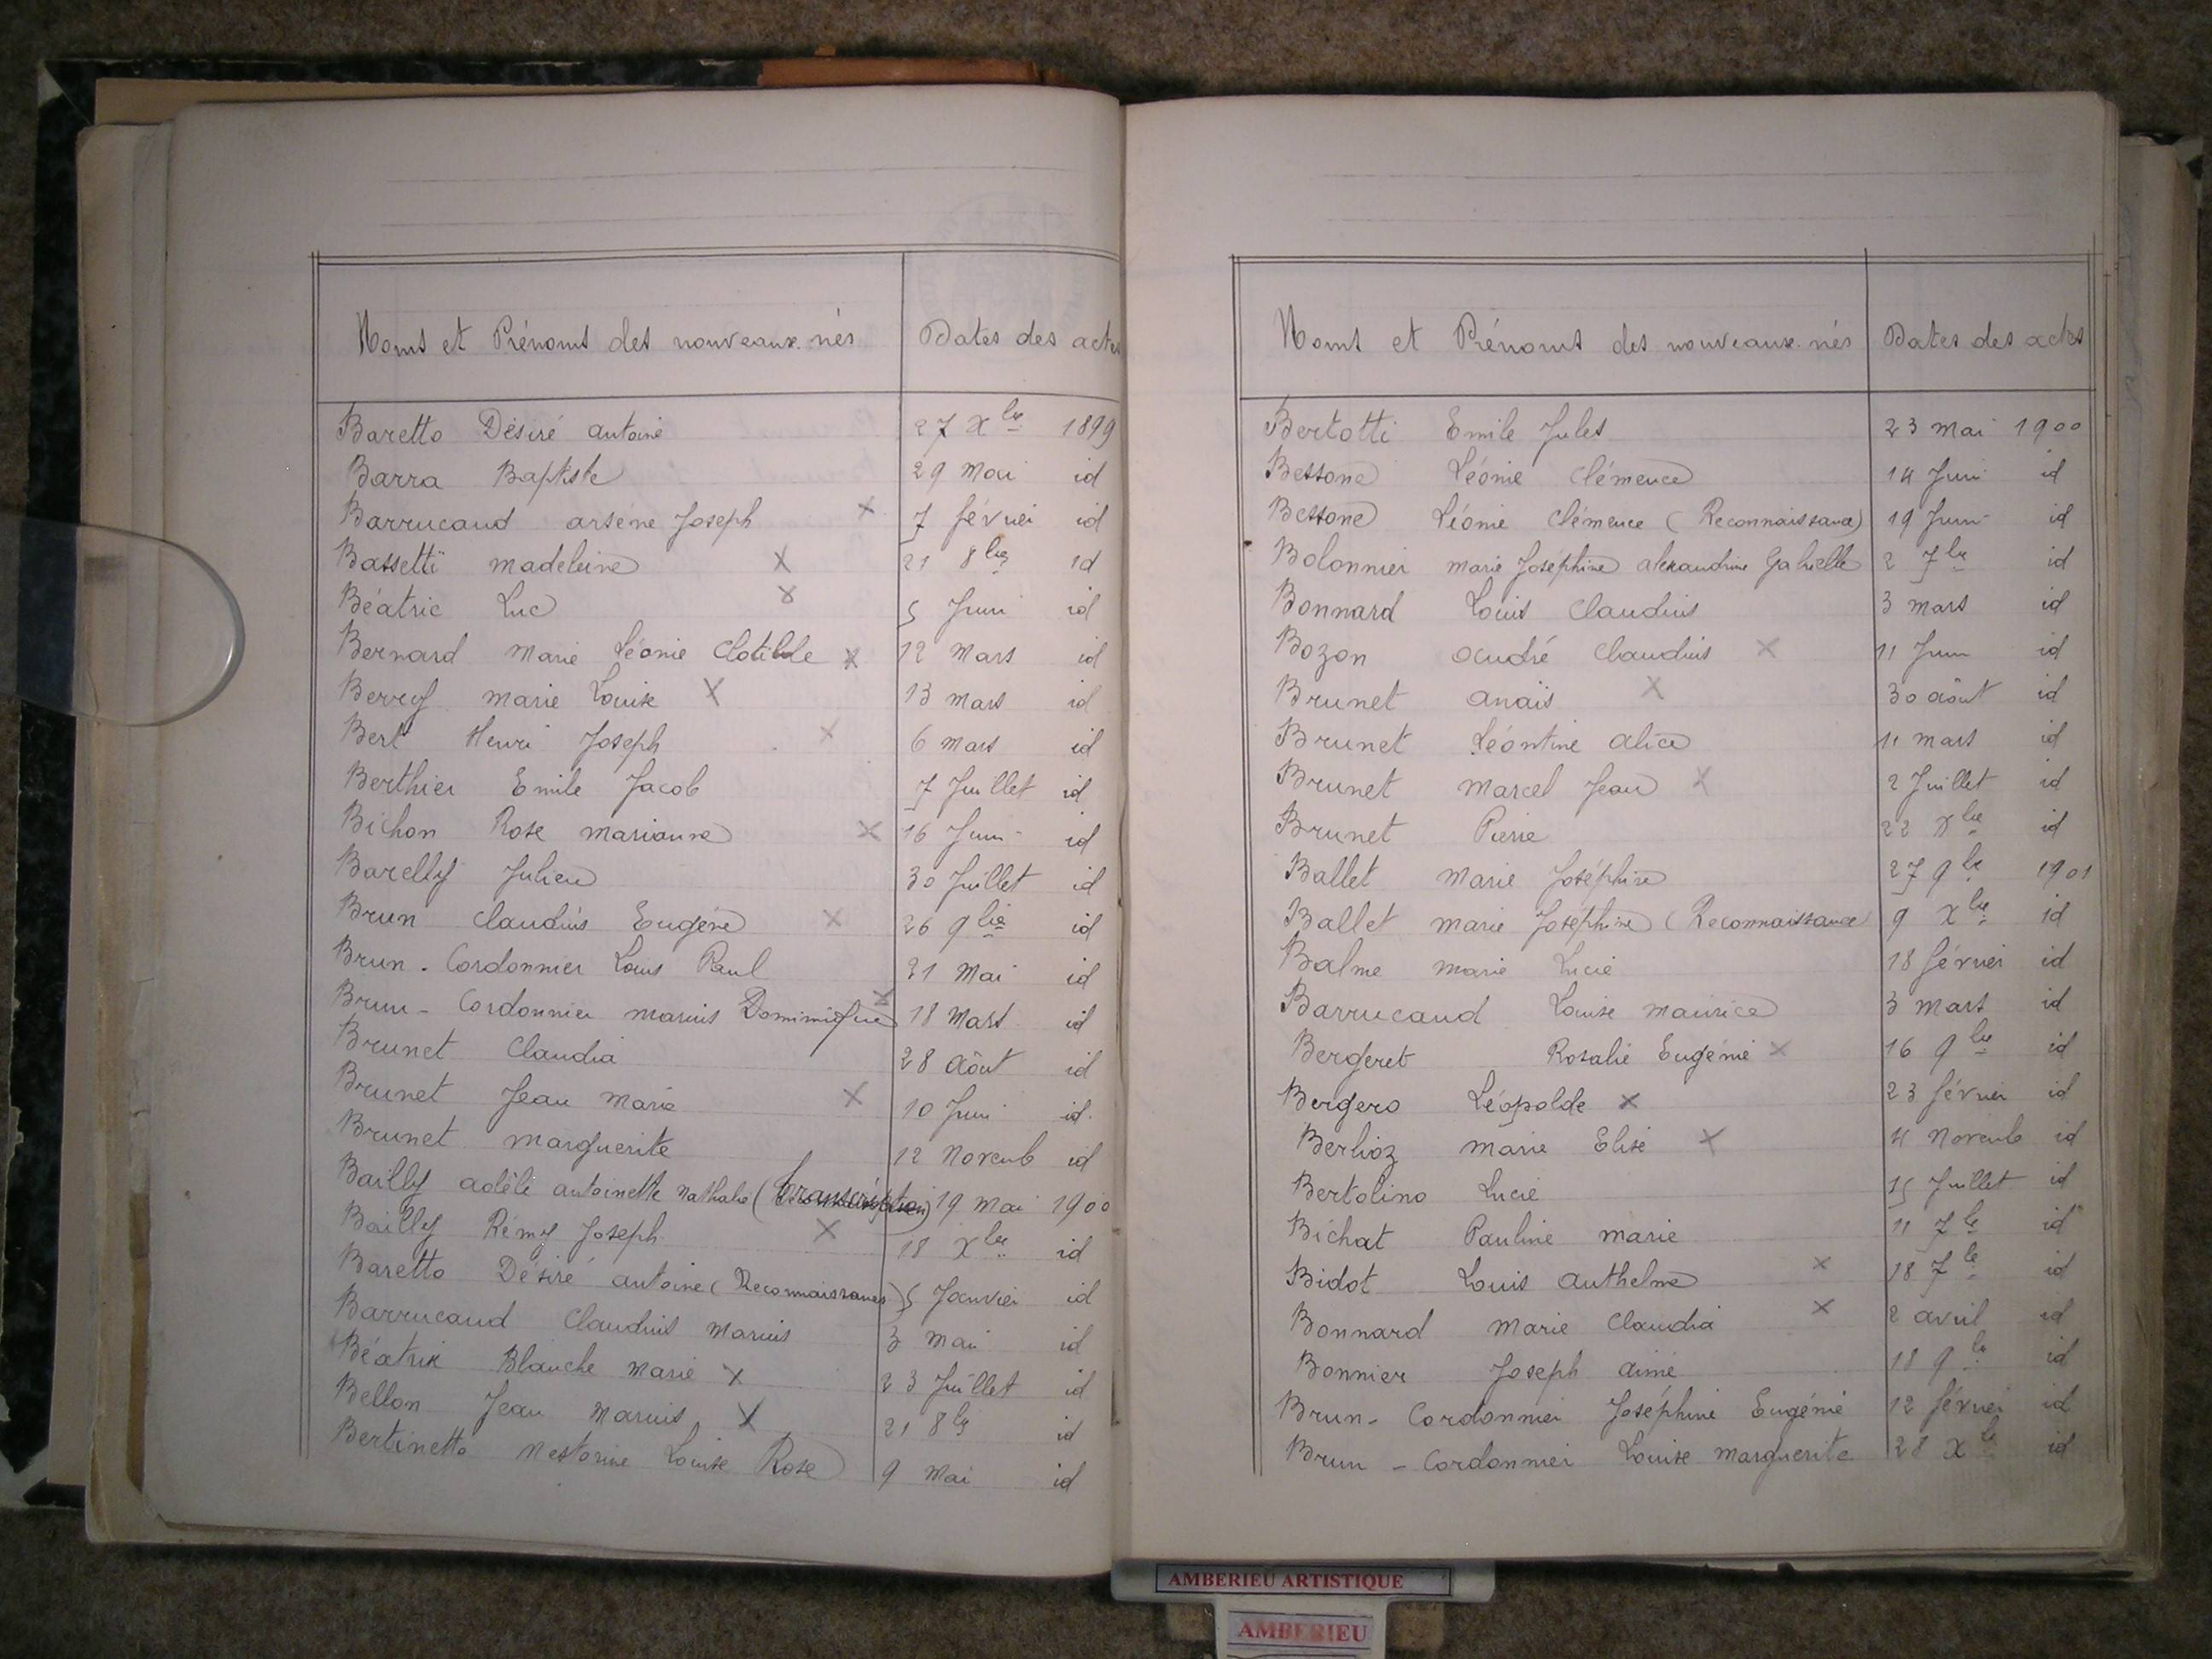 Noms et Prénoms des nouveaux-nés Dates des actes
Baretto Désiré antoine 27 Xbre 1899
Barra Baptiste 29 Mai id
Barrucand arsène Joseph X 7 février id
Bassetti madeleine X 21 8bre id
Béatric Luc X 5 Juin id
Bernard Marie Léonie Clotilde X 12 Mars id
Berry marie Louise X 13 mars id
Bert Henri Joseph X 6 mars id
Berthier Emile Jacob 7 Juillet id
Bichon Rose marianne X 16 Juin id
Barelly Julien 30 Juillet id
Brun Claudius Eugène X 26 9bre id
Brun-Cordonnier Louis Paul 21 Mai id
Brun-Cordonnier marius Dominique X 18 Mars id
Brunet Claudia 28 Août id
Brunet Jean marie X 10 Juin id.
Brunet marguerite 12 Novemb id
Bailly adèle antoinette Nathalie (Transcription) 19 mai 1900
Bailly Rémy Joseph X 18 Xbre id
Baretto Désiré antoine (Reconnaissances) 5 Janvier id
Barrucand Claudius Marius 3 mai id
Béatrix Blanche Marie X 23 Juillet id
Bellon Jean Marius X 21 8bre id
Bertinetto Nestorine Louise Rose 9 Mai id
Noms et Prénoms des nouveaux-nés Dates des actes
Bertotti Emile Jules 23 mai 1900
Bessone Léonie Clémence 14 Juin id
Bessone Léonie Clémence (Reconnaissance) 19 Juin id
Bolonnier marie Joséphine alexandrine Gabrielle 2 7bre id
Bonnard Louis Claudius 3 mars id
Bozon André Claudius X 11 Juin id
Brunet anaïs X 30 août id
Brunet Léontine alice 11 mars id
Brunet Marcel Jean X 2 Juillet id
Brunet Pierre 22 Xbre id
Ballet Marie Joséphine 27 9bre 1901
Ballet marie Joséphine (Reconnaissance 9 Xbre id
Balme marie Lucie 18 février id
Barrucand Louise maurice 3 mars id
Bergeret Rosalie Eugénie X 16 9bre id
Bergero Léopolde X 23 février id
Berlioz Marie Elise X 4 Novemb id
Bertolino Lucie 15 Juillet id
Bichat Pauline marie 11 7bre id
Bidot Louis Anthelme X 18 7bre id
Bonnard Marie Claudia X 2 avril id
Bonnier Joseph aimé 18 9bre id
Brun-Cordonnier Joséphine Eugénie 12 février id
Brun-Cordonnier Louise Marguerite 28 Xbre id
AMBERIEU ARTISTIQUE
AMBERIEU